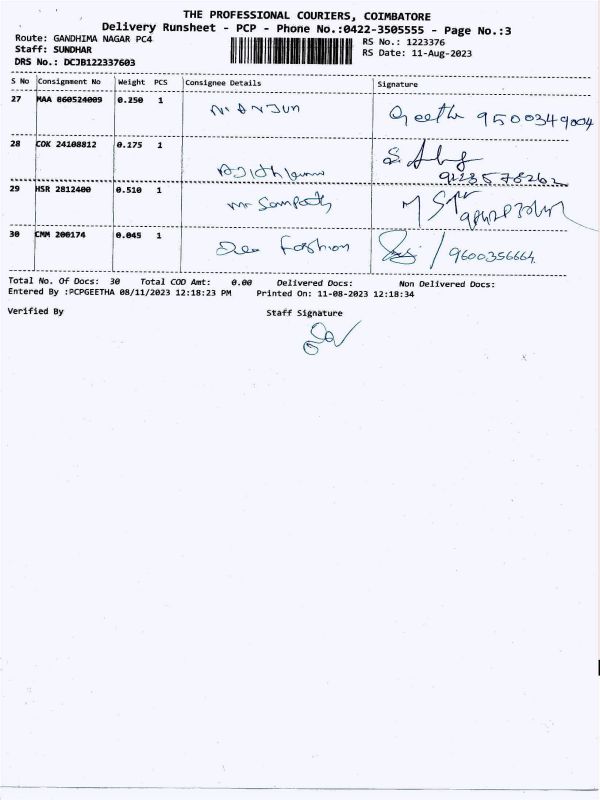 THE PROFESSIONAL COURIERS, COIMBATORE
Delivery Runsheet - PCP - Phone No.:0422-3505555 - Page No.:3
Route: GANDHIMA NAGAR PC4
RS No.: 1223376
Staff: SUNDHAR
RS Date: 11-Aug-2023
DRS No.: DCJB122337603
S No Consignment No Weight PCS Consignee Details Signature
27 MAA 860524009 0.250 1 Geetha 9500349004
28 COK 24108812 0.175 1
29 HSR 2812400 0.510 1 Mr Sampath
30 CMM 200174 0.045 1 Fashion 9600356664
Total No. Of Docs: 30 Total COD Amt: 0.00 Delivered Docs: Non Delivered Docs:
Entered By :PCPGEETHA 08/11/2023 12:18:23 PM Printed On: 11-08-2023 12:18:34
Verified By Staff Signature